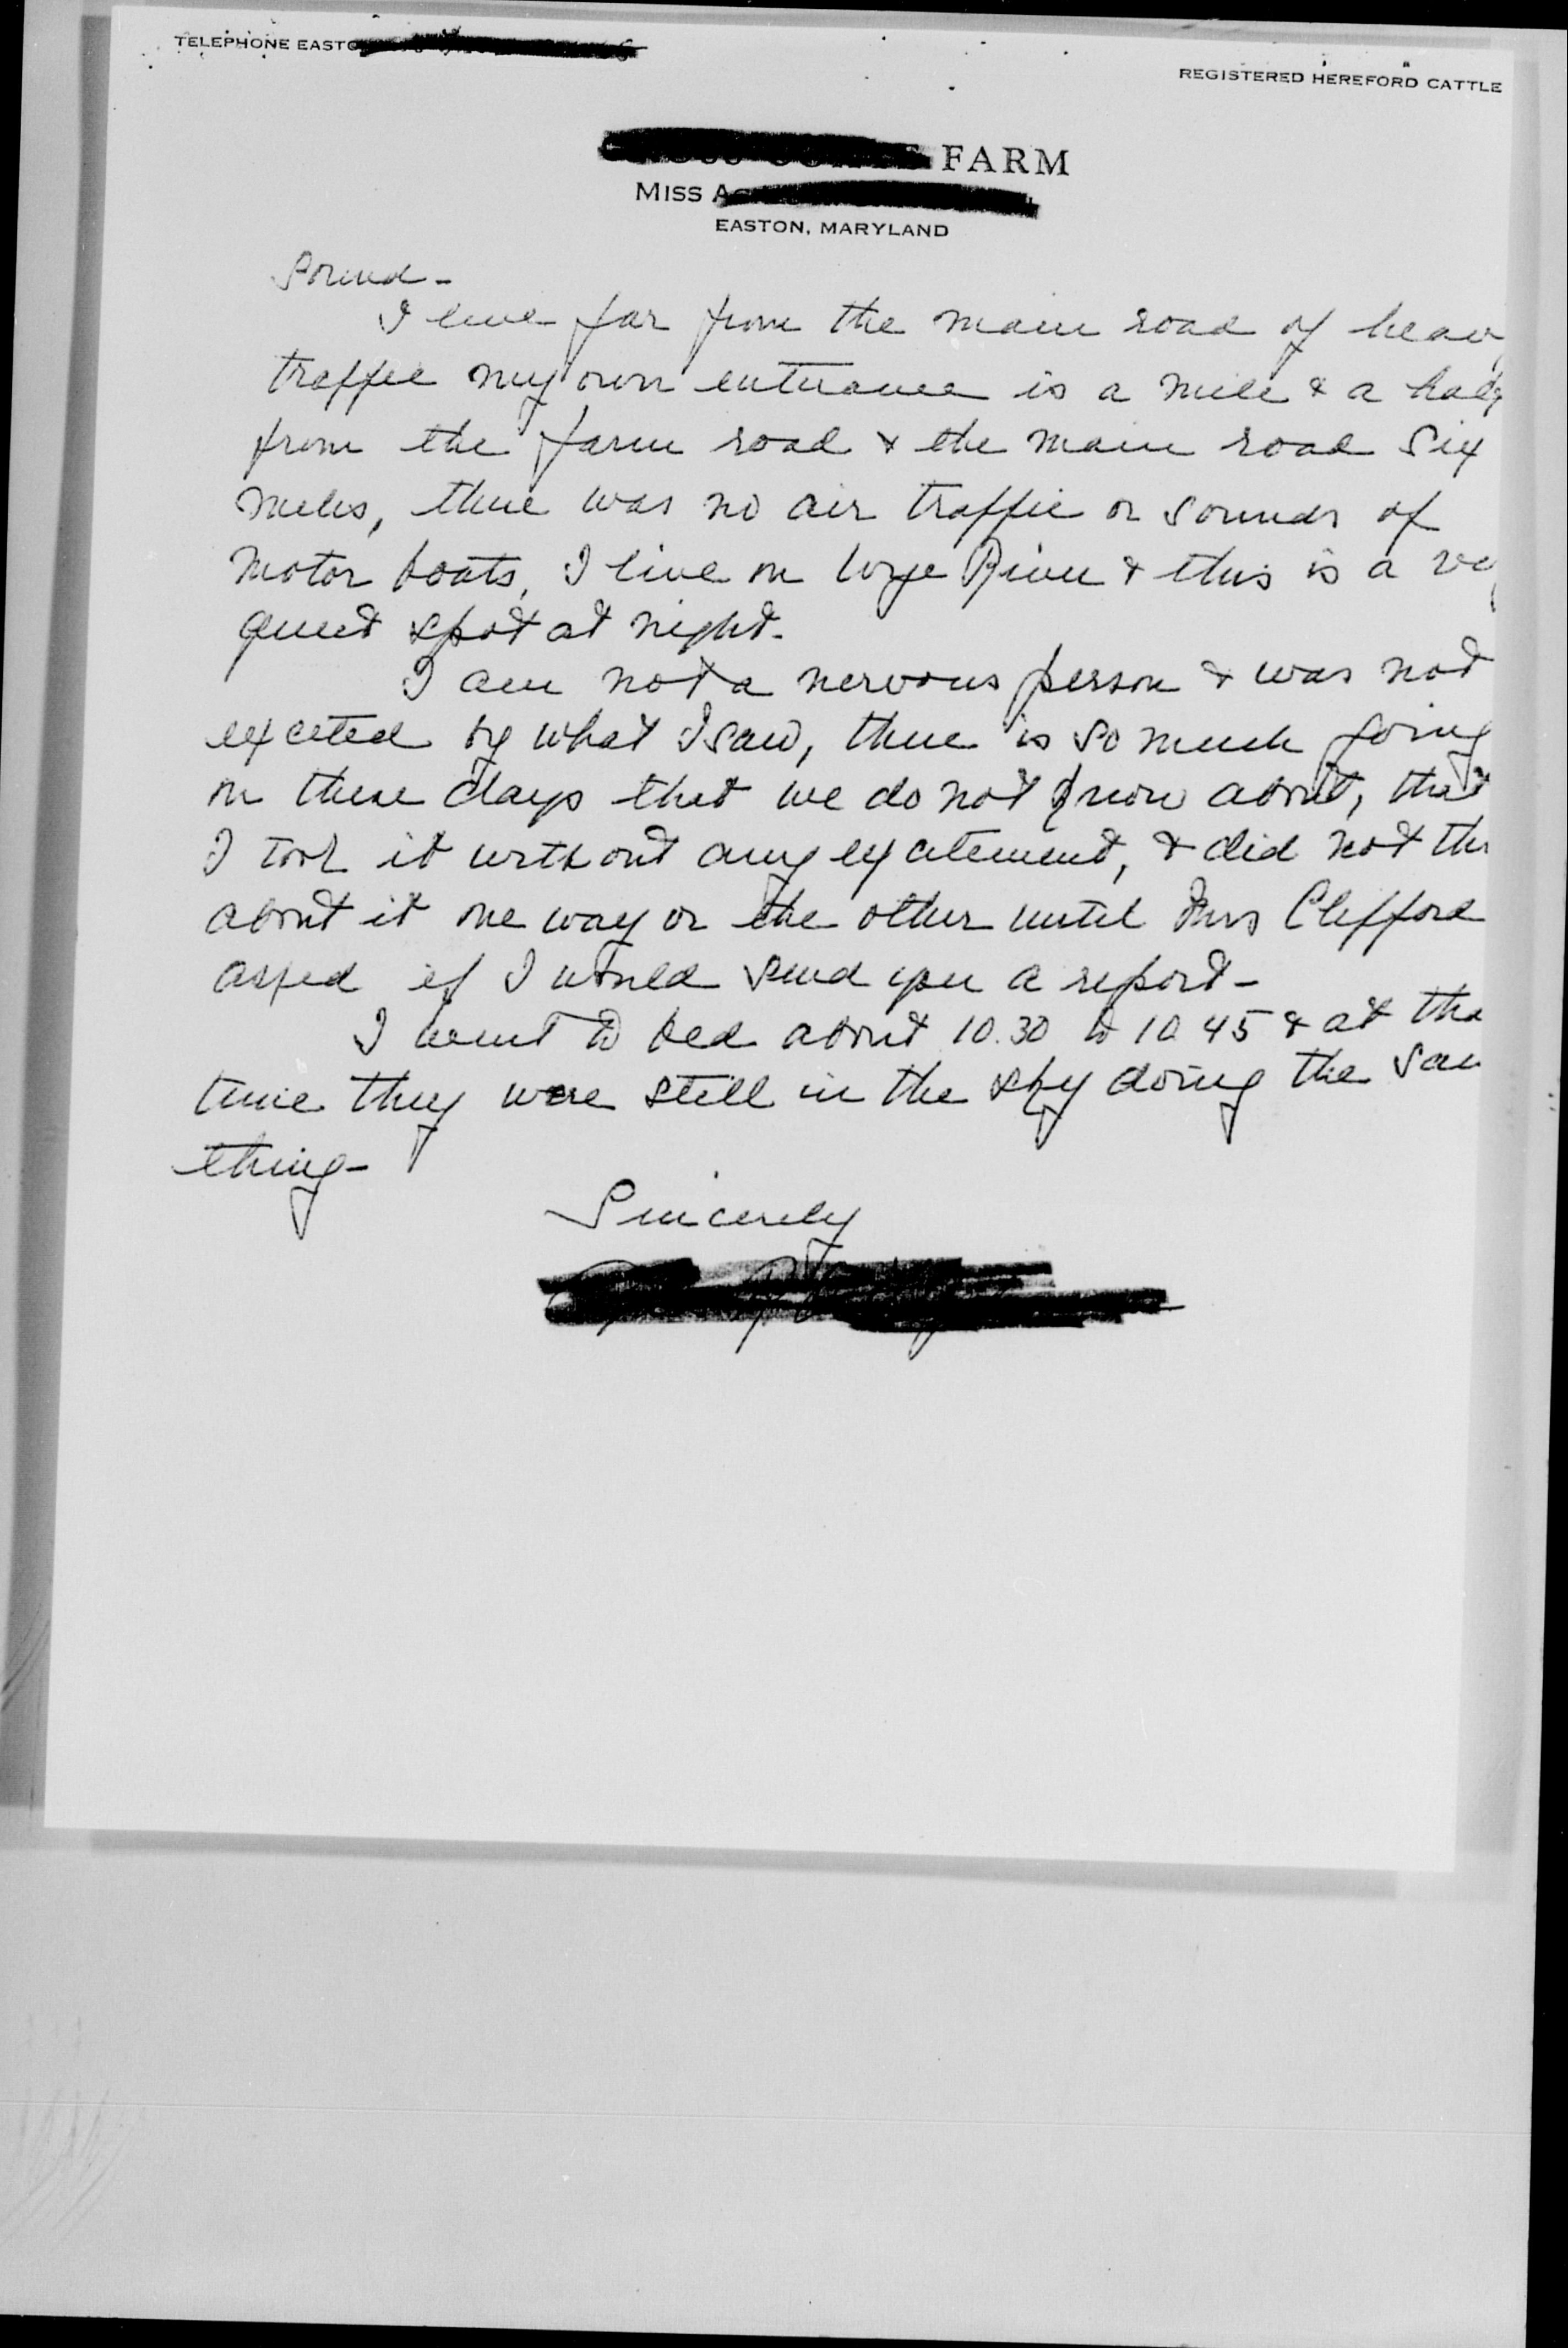 TELEPHONE EASTO
REGISTERED HEREFORD CATTLE
FARM
MISS A
EASTON, MARYLAND
Sound -
I live far from the main road of heav
traffic my own entrance is a mile & a half
from the farm road & the main road six
miles, there was no air traffic or sounds of
motor boats, I live on Wye River & this is a ve
quiet spot at night.
I am not a nervous person & was not
excited by what I saw, there is so much going
on these days that we do not know about, that
I took it without any excitement, & did not thi
about it one way or the other until Mrs Clifford
asked if I would send you a report -
I went to bed about 10.30 to 10 45 & at tha
time they were still in the sky doing the sam
thing -
Sincerely